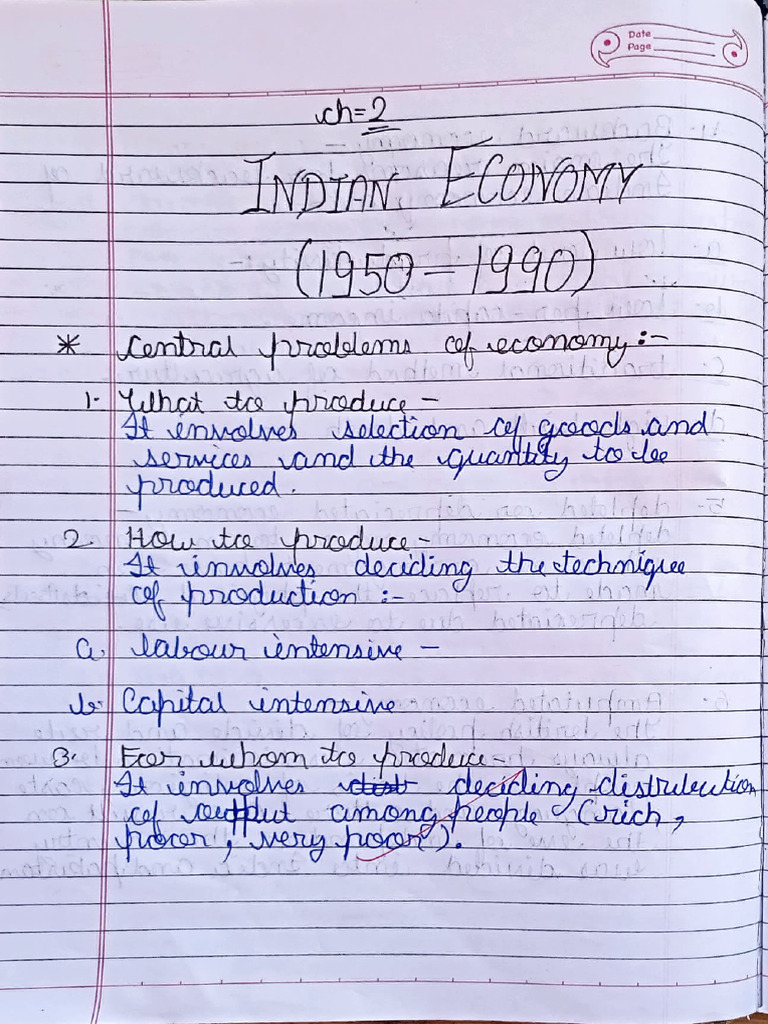 Date
Page
ch=2
INDIAN ECONOMY
(1950-1990)
* Central problems of economy:-
1. What to produce -
It involves selection of goods and
services and the quantity to be
produced.
2. How to produce -
It involves deciding the technique
of production :-
a. labour intensive -
b. Capital intensive
3. For whom to produce -
It involves deciding distribution
of output among people (rich,
poor, very poor).